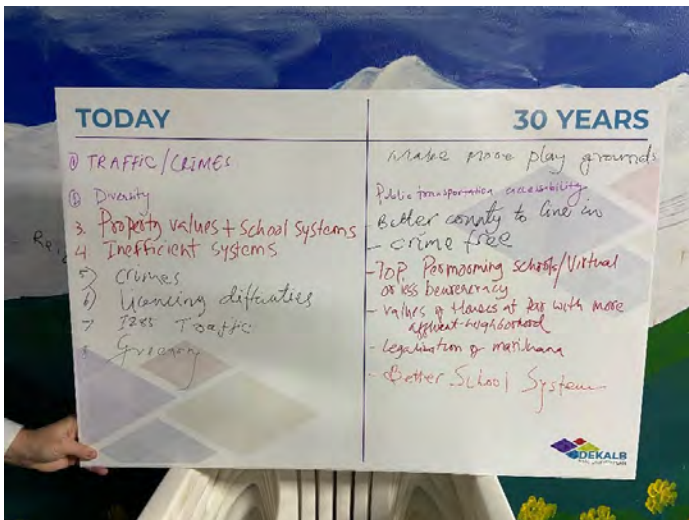 TODAY
① TRAFFIC/CRIMES
② Diversity
3. Property values + School systems
4 Inefficient systems
5) Crimes
6) Licencing difficuties
7 I285 Traffic
8 Greenery
30 YEARS
Make more play grounds
Public transportation accessibility
Better county to live in
- crime free
- TOP Permooming schools/Virtual
or less beaureneracy
- values of Houses at par with more
affluent neighborhood
- legalization of marihuana
- Better School System
DEKALB